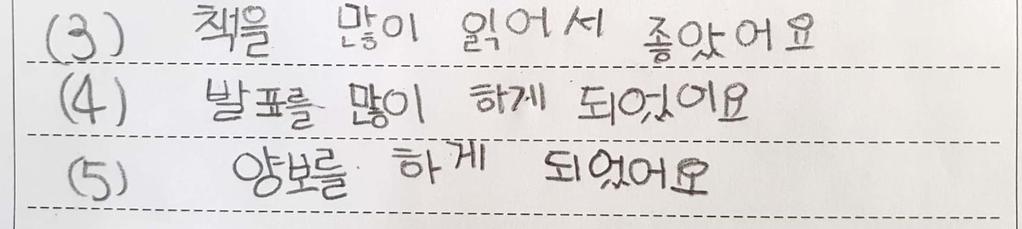 (3) 책을 많이 읽어서 좋았어요
(4) 발표를 많이 하게 되었어요
(5) 양보를 하게 되었어요